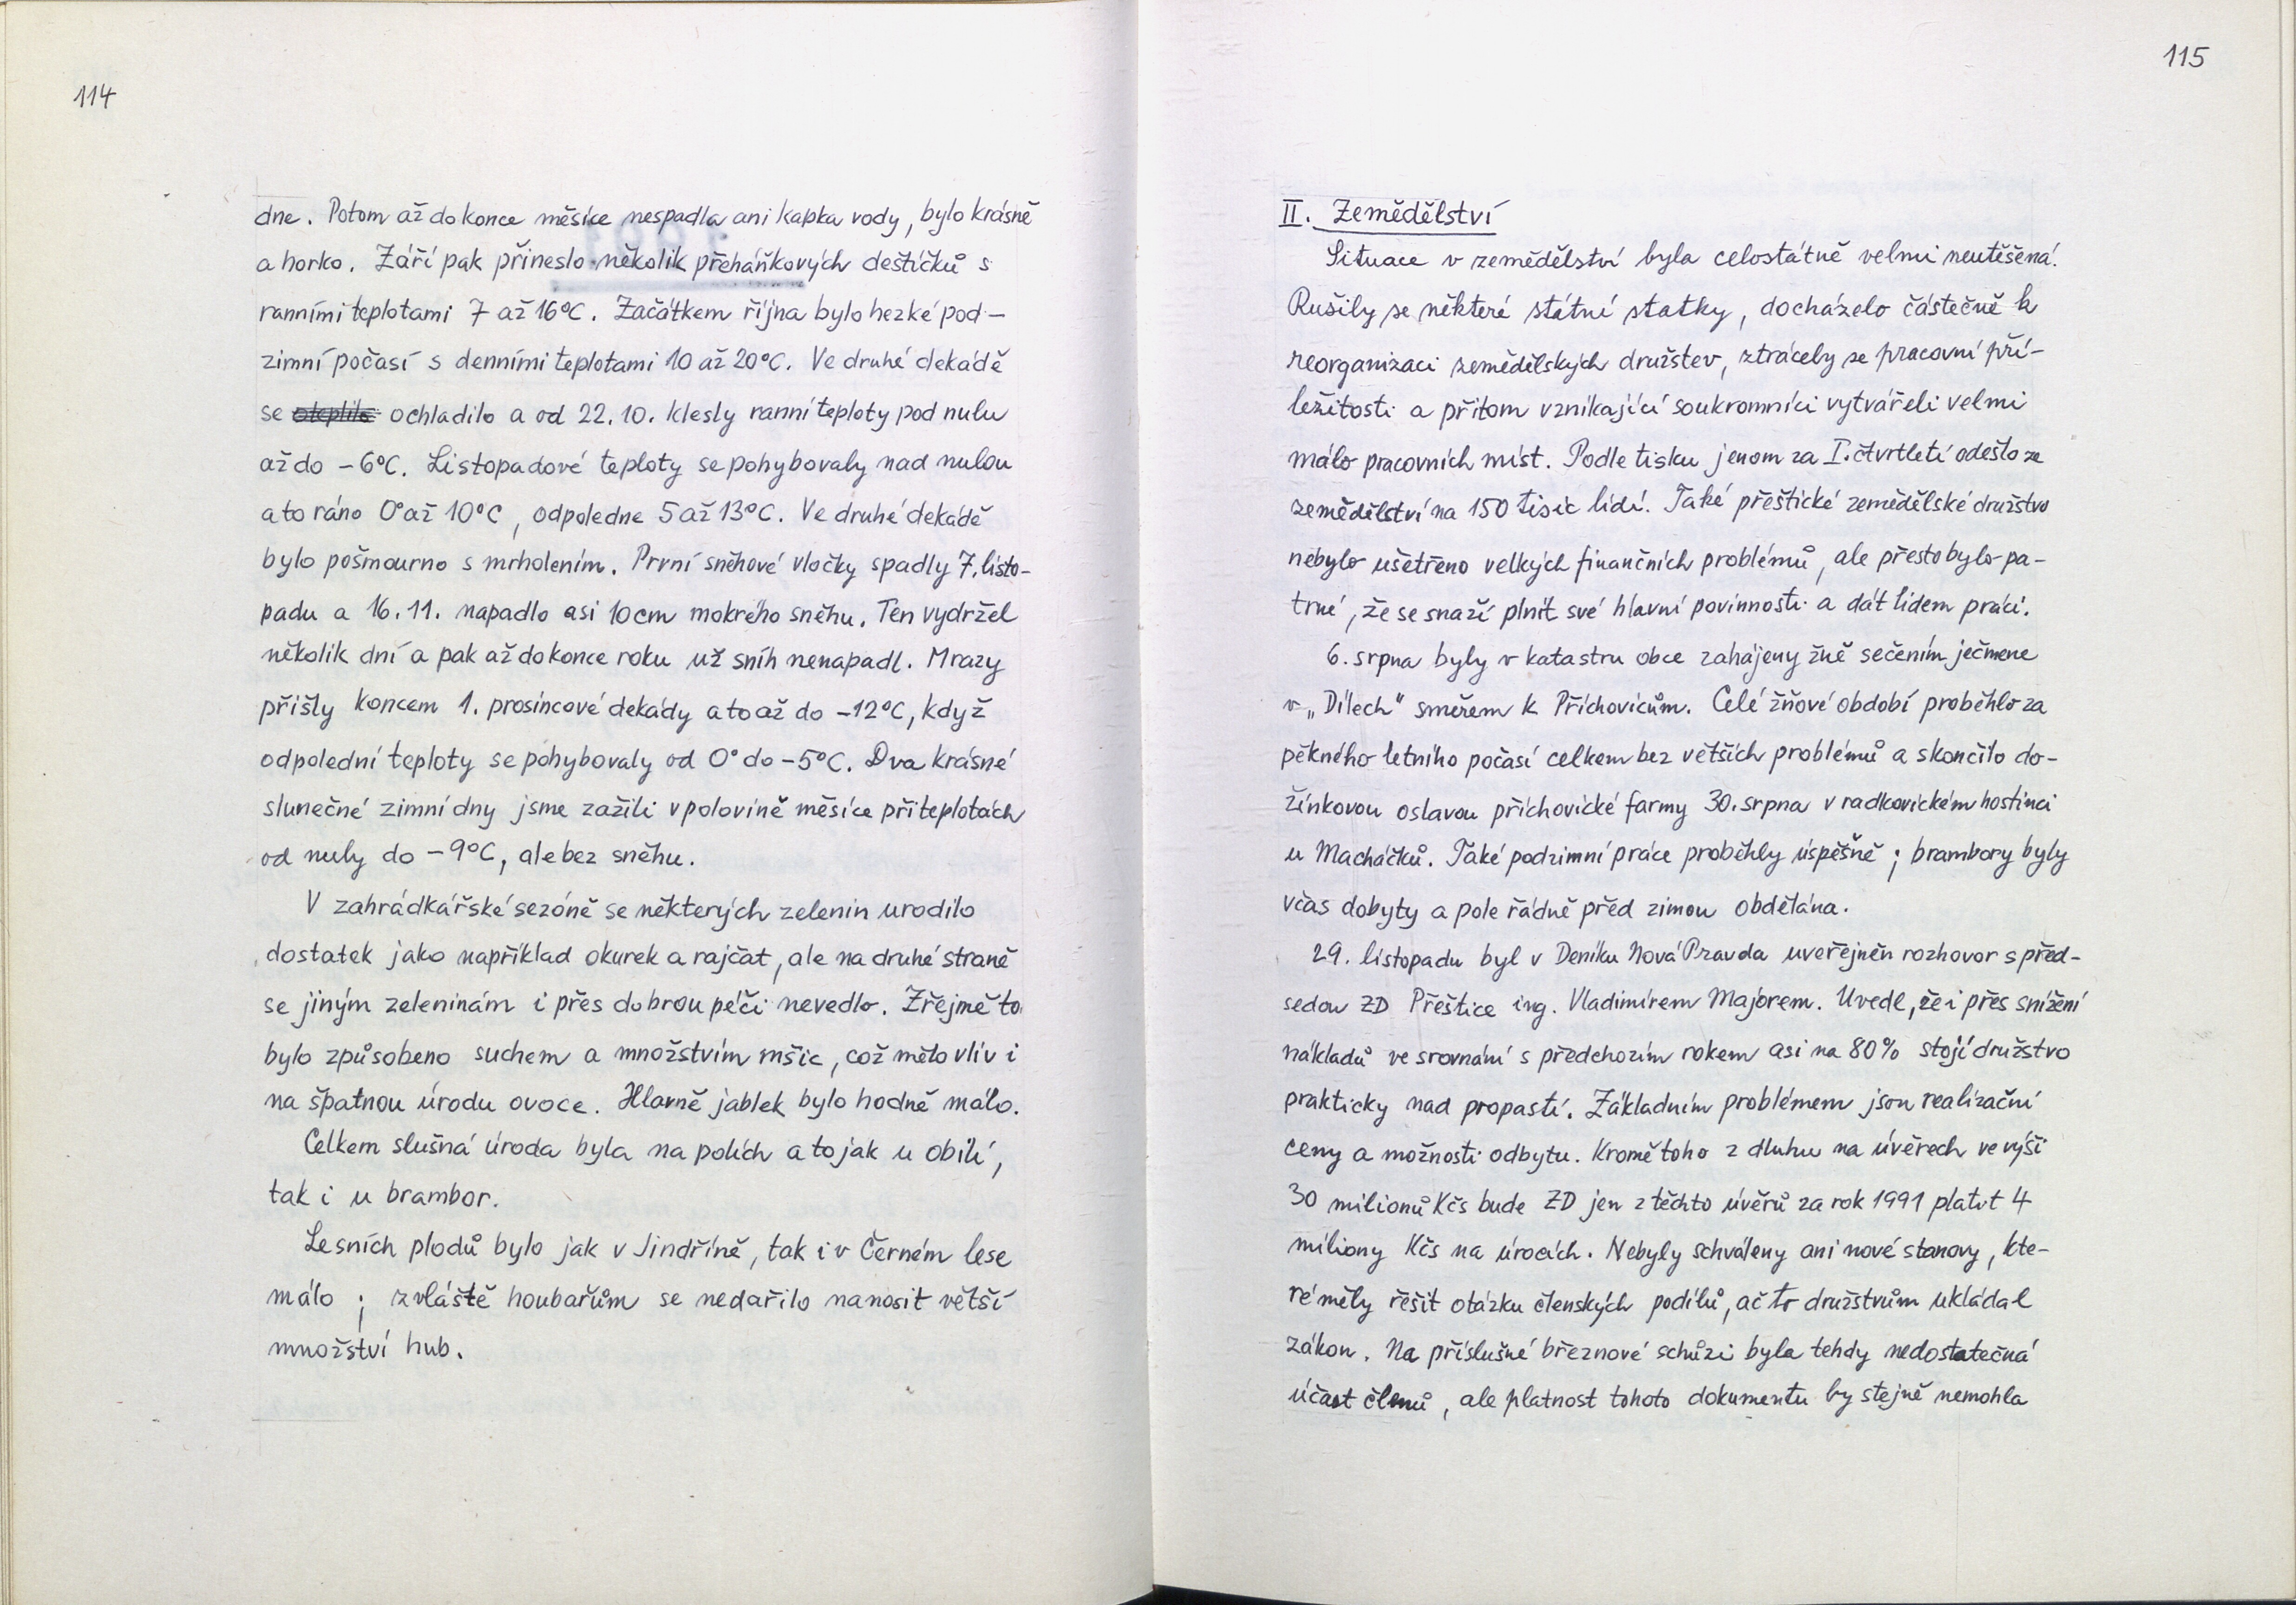 114
dne. Potom až do konce měsíce nespadla ani kapka vody, bylo krásně
a horko. Září pak přineslo několik přeháňkových deštíčků s
ranními teplotami 7 až 16°C. Začátkem října bylo hezké pod-
zimní počasí s denními teplotami 10 až 20°C. Ve druhé dekádě
se oteplilo ochladilo a od 22.10. klesly ranní teploty pod nulu
až do -6°C. Listopadové teploty se pohybovaly nad nulou
a to ráno 0° až 10°C, odpoledne 5 až 13°C. Ve druhé dekádě
bylo pošmourno s mrholením. První sněhové vločky spadly 7. listo-
padu a 16.11. napadlo asi 10 cm mokrého sněhu. Ten vydržel
několik dní a pak až do konce roku už sníh nenapadl. Mrazy
přišly koncem 1. prosincové dekády a to až do -12°C, když
odpolední teploty se pohybovaly od 0° do -5°C. Dva krásné
slunečné zimní dny jsme zažili v polovině měsíce při teplotách
od nuly do -9°C, ale bez sněhu.
V zahrádkářské sezóně se některých zelenin urodilo
dostatek jako například okurek a rajčat, ale na druhé straně
se jiným zeleninám i přes dobrou péči nevedlo. Zřejmě to
bylo způsobeno suchem a množstvím mšic, což mělo vliv i
na špatnou úrodu ovoce. Hlavně jablek bylo hodně málo.
Celkem slušná úroda byla na polích a to jak u obilí,
tak i u brambor.
Lesních plodů bylo jak v Jindříně, tak i v Černém lese
málo ; zvláště houbařům se nedařilo nanosit větší
množství hub.
115
II. Zemědělství
Situace v zemědělství byla celostátně velmi neutěšená.
Rušily se některé státní statky, docházelo částečně k
reorganizaci zemědělských družstev, ztrácely se pracovní pří-
ležitosti a přitom vznikající soukromníci vytvářeli velmi
málo pracovních míst. Podle tisku jenom za I. čtvrtletí odešlo ze
zemědělství na 150 tisíc lidí. Také přeštické zemědělské družstvo
nebylo ušetřeno velkých finančních problémů, ale přesto bylo pa-
trné, že se snaží plnit své hlavní povinnosti a dát lidem práci.
6. srpna byly v katastru obce zahájeny žně sečením ječmene
v „Dílech" směrem k Příchovicům. Celé žňové období proběhlo za
pěkného letního počasí celkem bez větších problémů a skončilo do-
žínkovou oslavou příchovické farmy 30. srpna v radkovickém hostinci
u Macháčků. Také podzimní práce proběhly úspěšně ; brambory byly
včas dobyty a pole řádně před zimou obdělána.
29. listopadu byl v Deníku Nová Pravda uveřejněn rozhovor s před-
sedou ZD Přeštice ing. Vladimírem Majorem. Uvedl, že i přes snížení
nákladů ve srovnání s předchozím rokem asi na 80% stojí družstvo
prakticky nad propastí. Základním problémem jsou realizační
ceny a možnosti odbytu. Kromě toho z dluhu na úvěrech ve výši
30 milionů Kčs bude ZD jen z těchto úvěrů za rok 1991 platit 4
miliony Kčs na úrocích. Nebyly schváleny ani nové stanovy, kte-
ré měly řešit otázku členských podílů, ač to družstvům ukládal
zákon. Na příslušné březnové schůzi byla tehdy nedostatečná
účast členů, ale platnost tohoto dokumentu by stejně nemohla